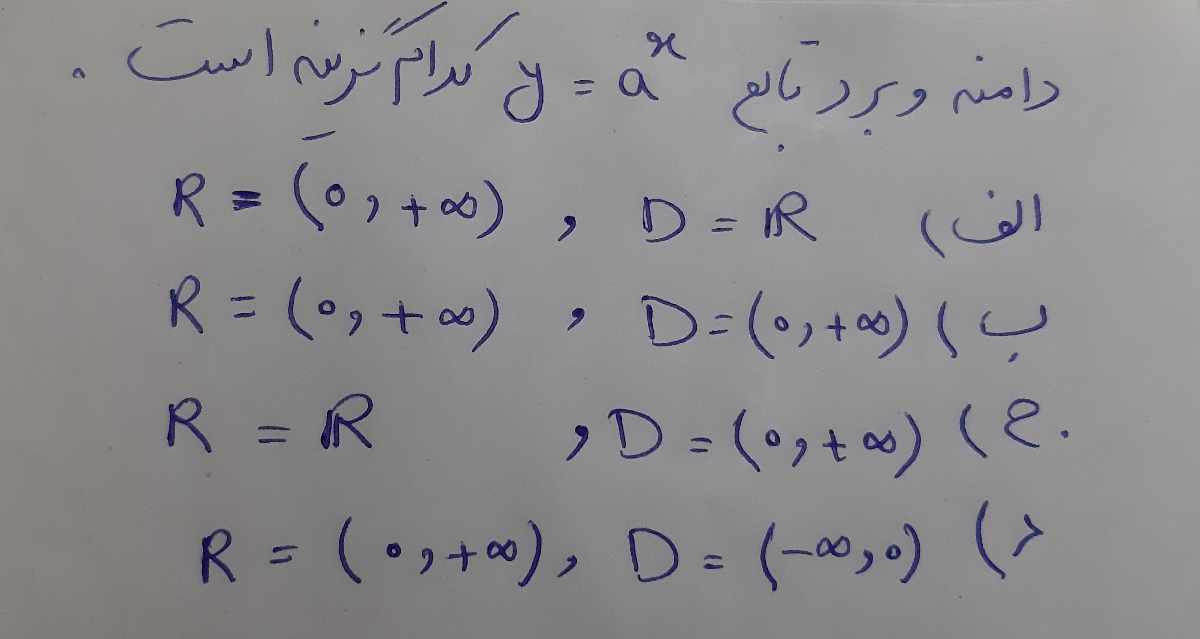 دامنه و برد تابع y = aˣ کدام گزینه است .
الف) D = ℝ , R = (0, +∞)
ب) D = (0, +∞) , R = (0, +∞)
ج) D = (0, +∞) , R = ℝ
د) D = (-∞, 0) , R = (0, +∞)